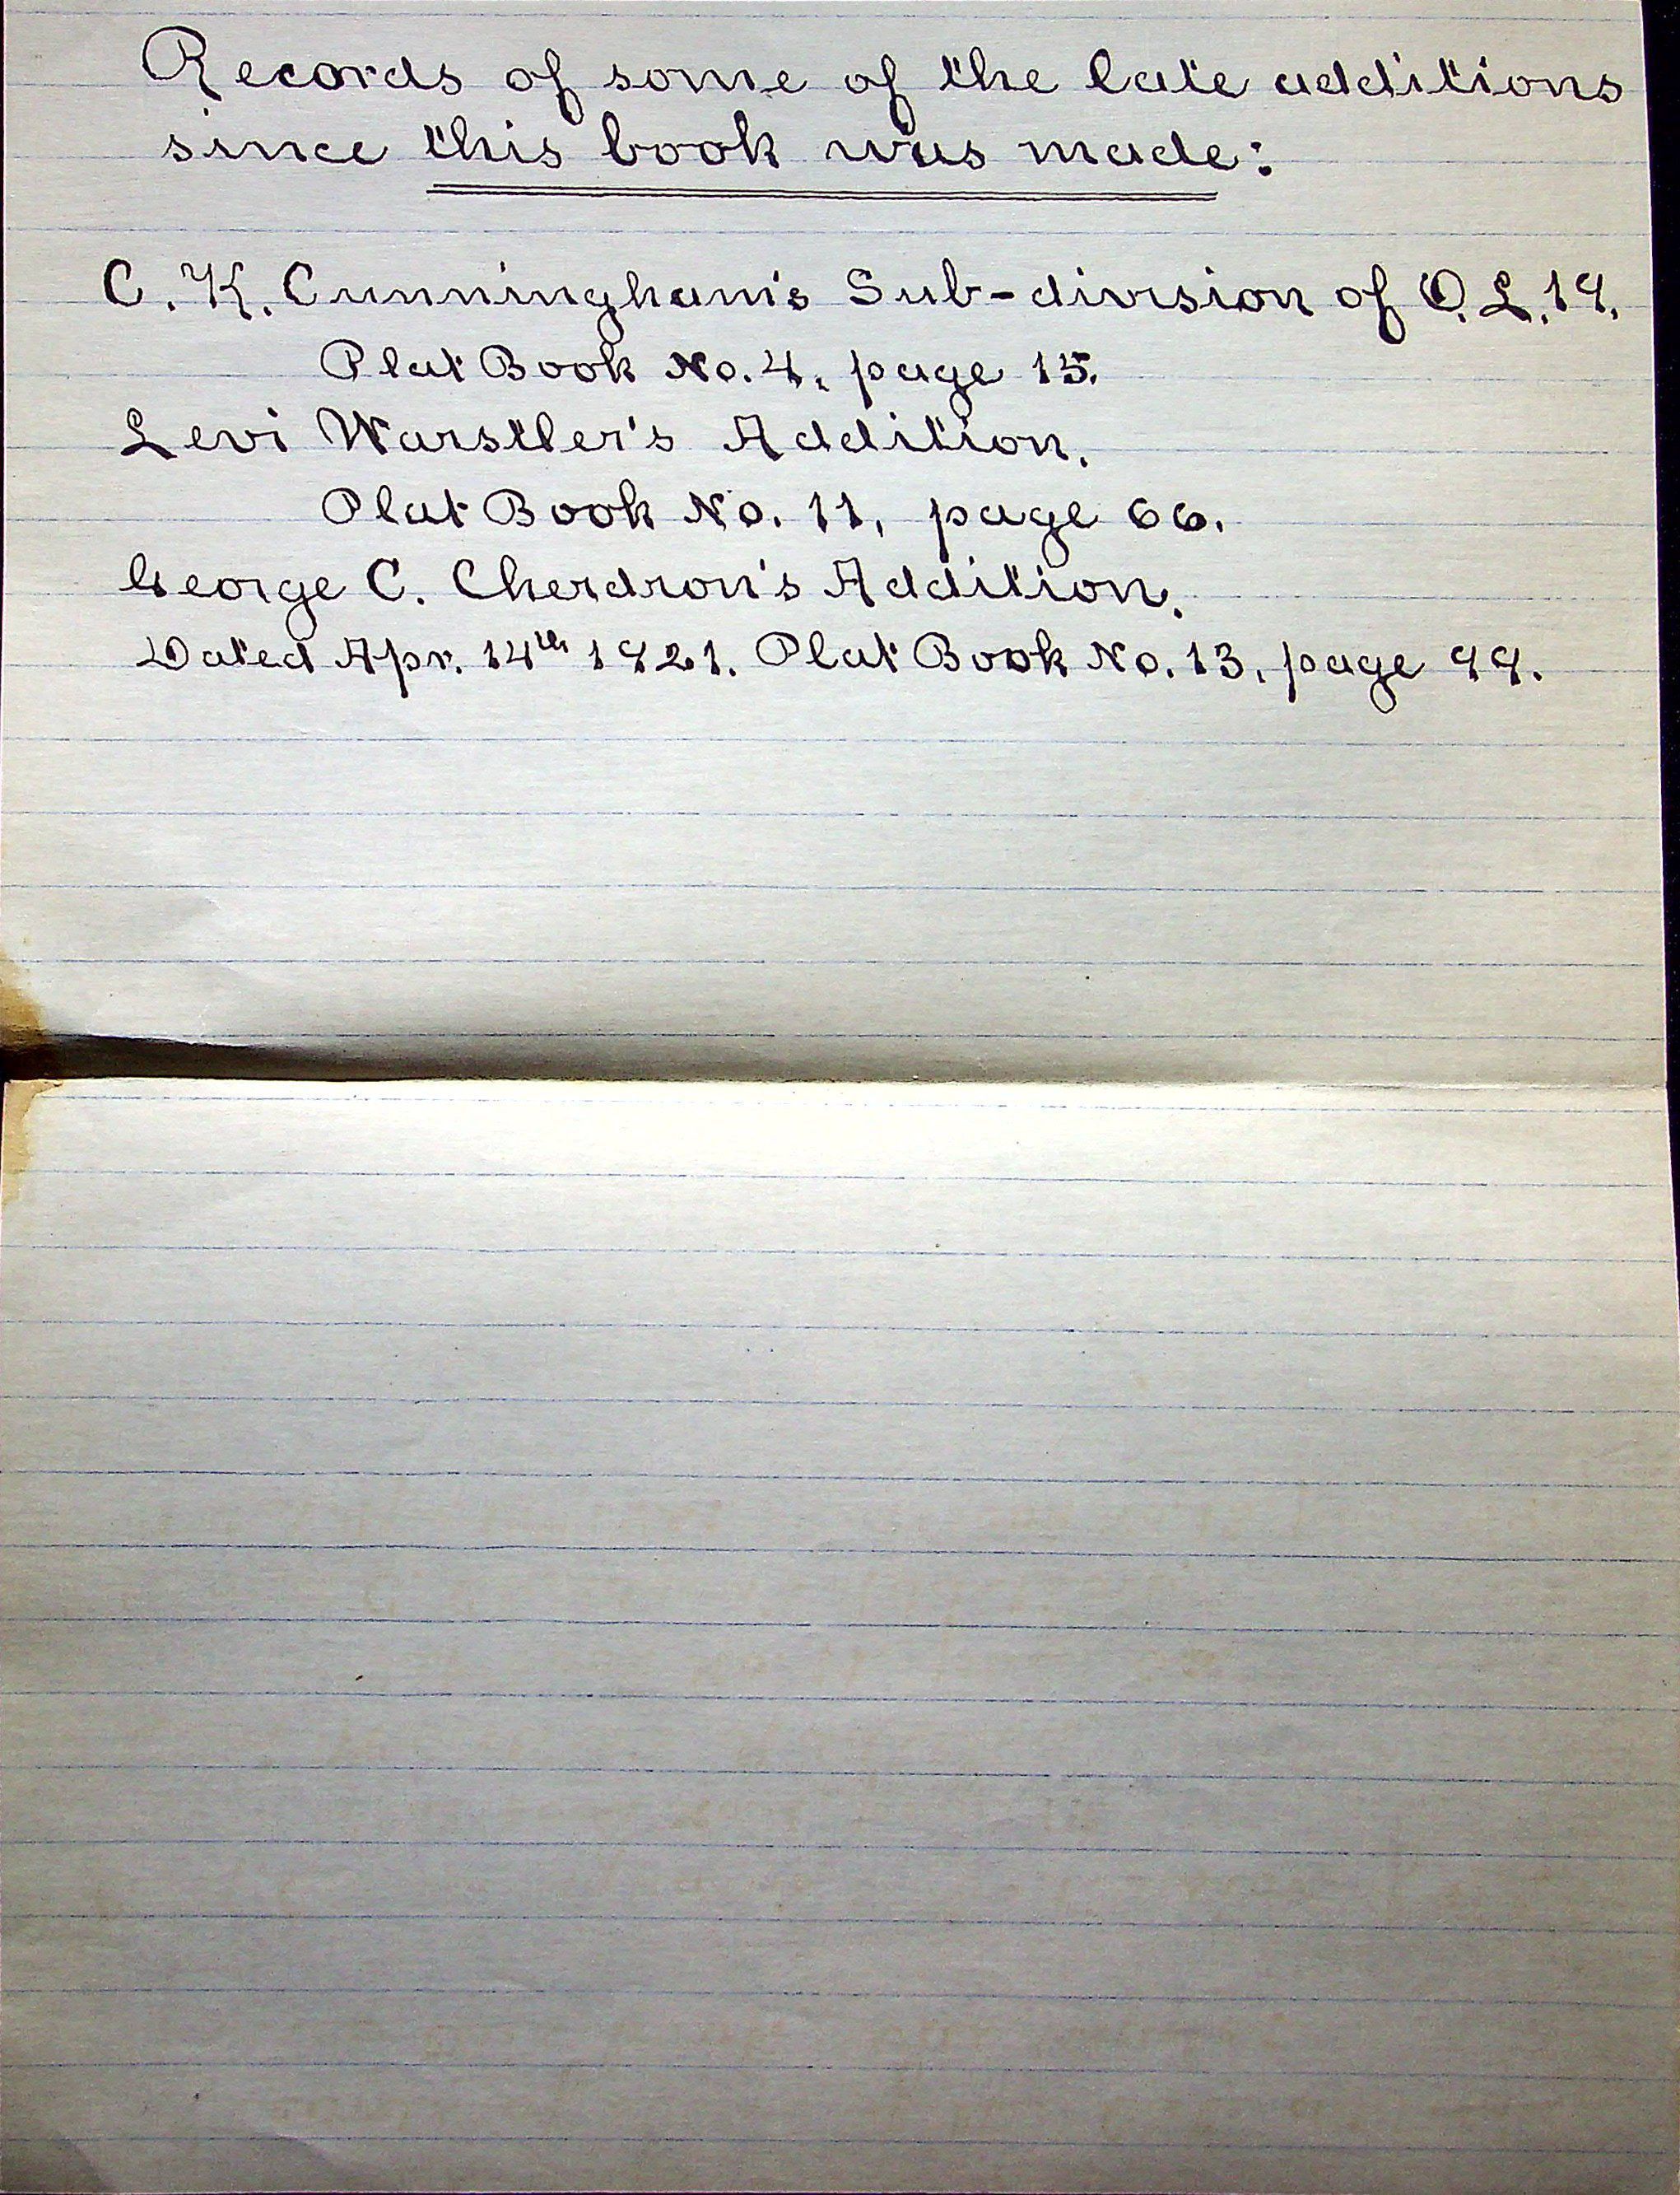 Records of some of the late additions
since this book was made:
C. K. Cunningham's Sub-division of O. L. 19.
Plat Book No. 4, page 15.
Levi Warstler's Addition.
Plat Book No. 11, page 66.
George C. Cherdron's Addition.
Dated Apr. 14th 1921. Plat Book No. 13, page 99.